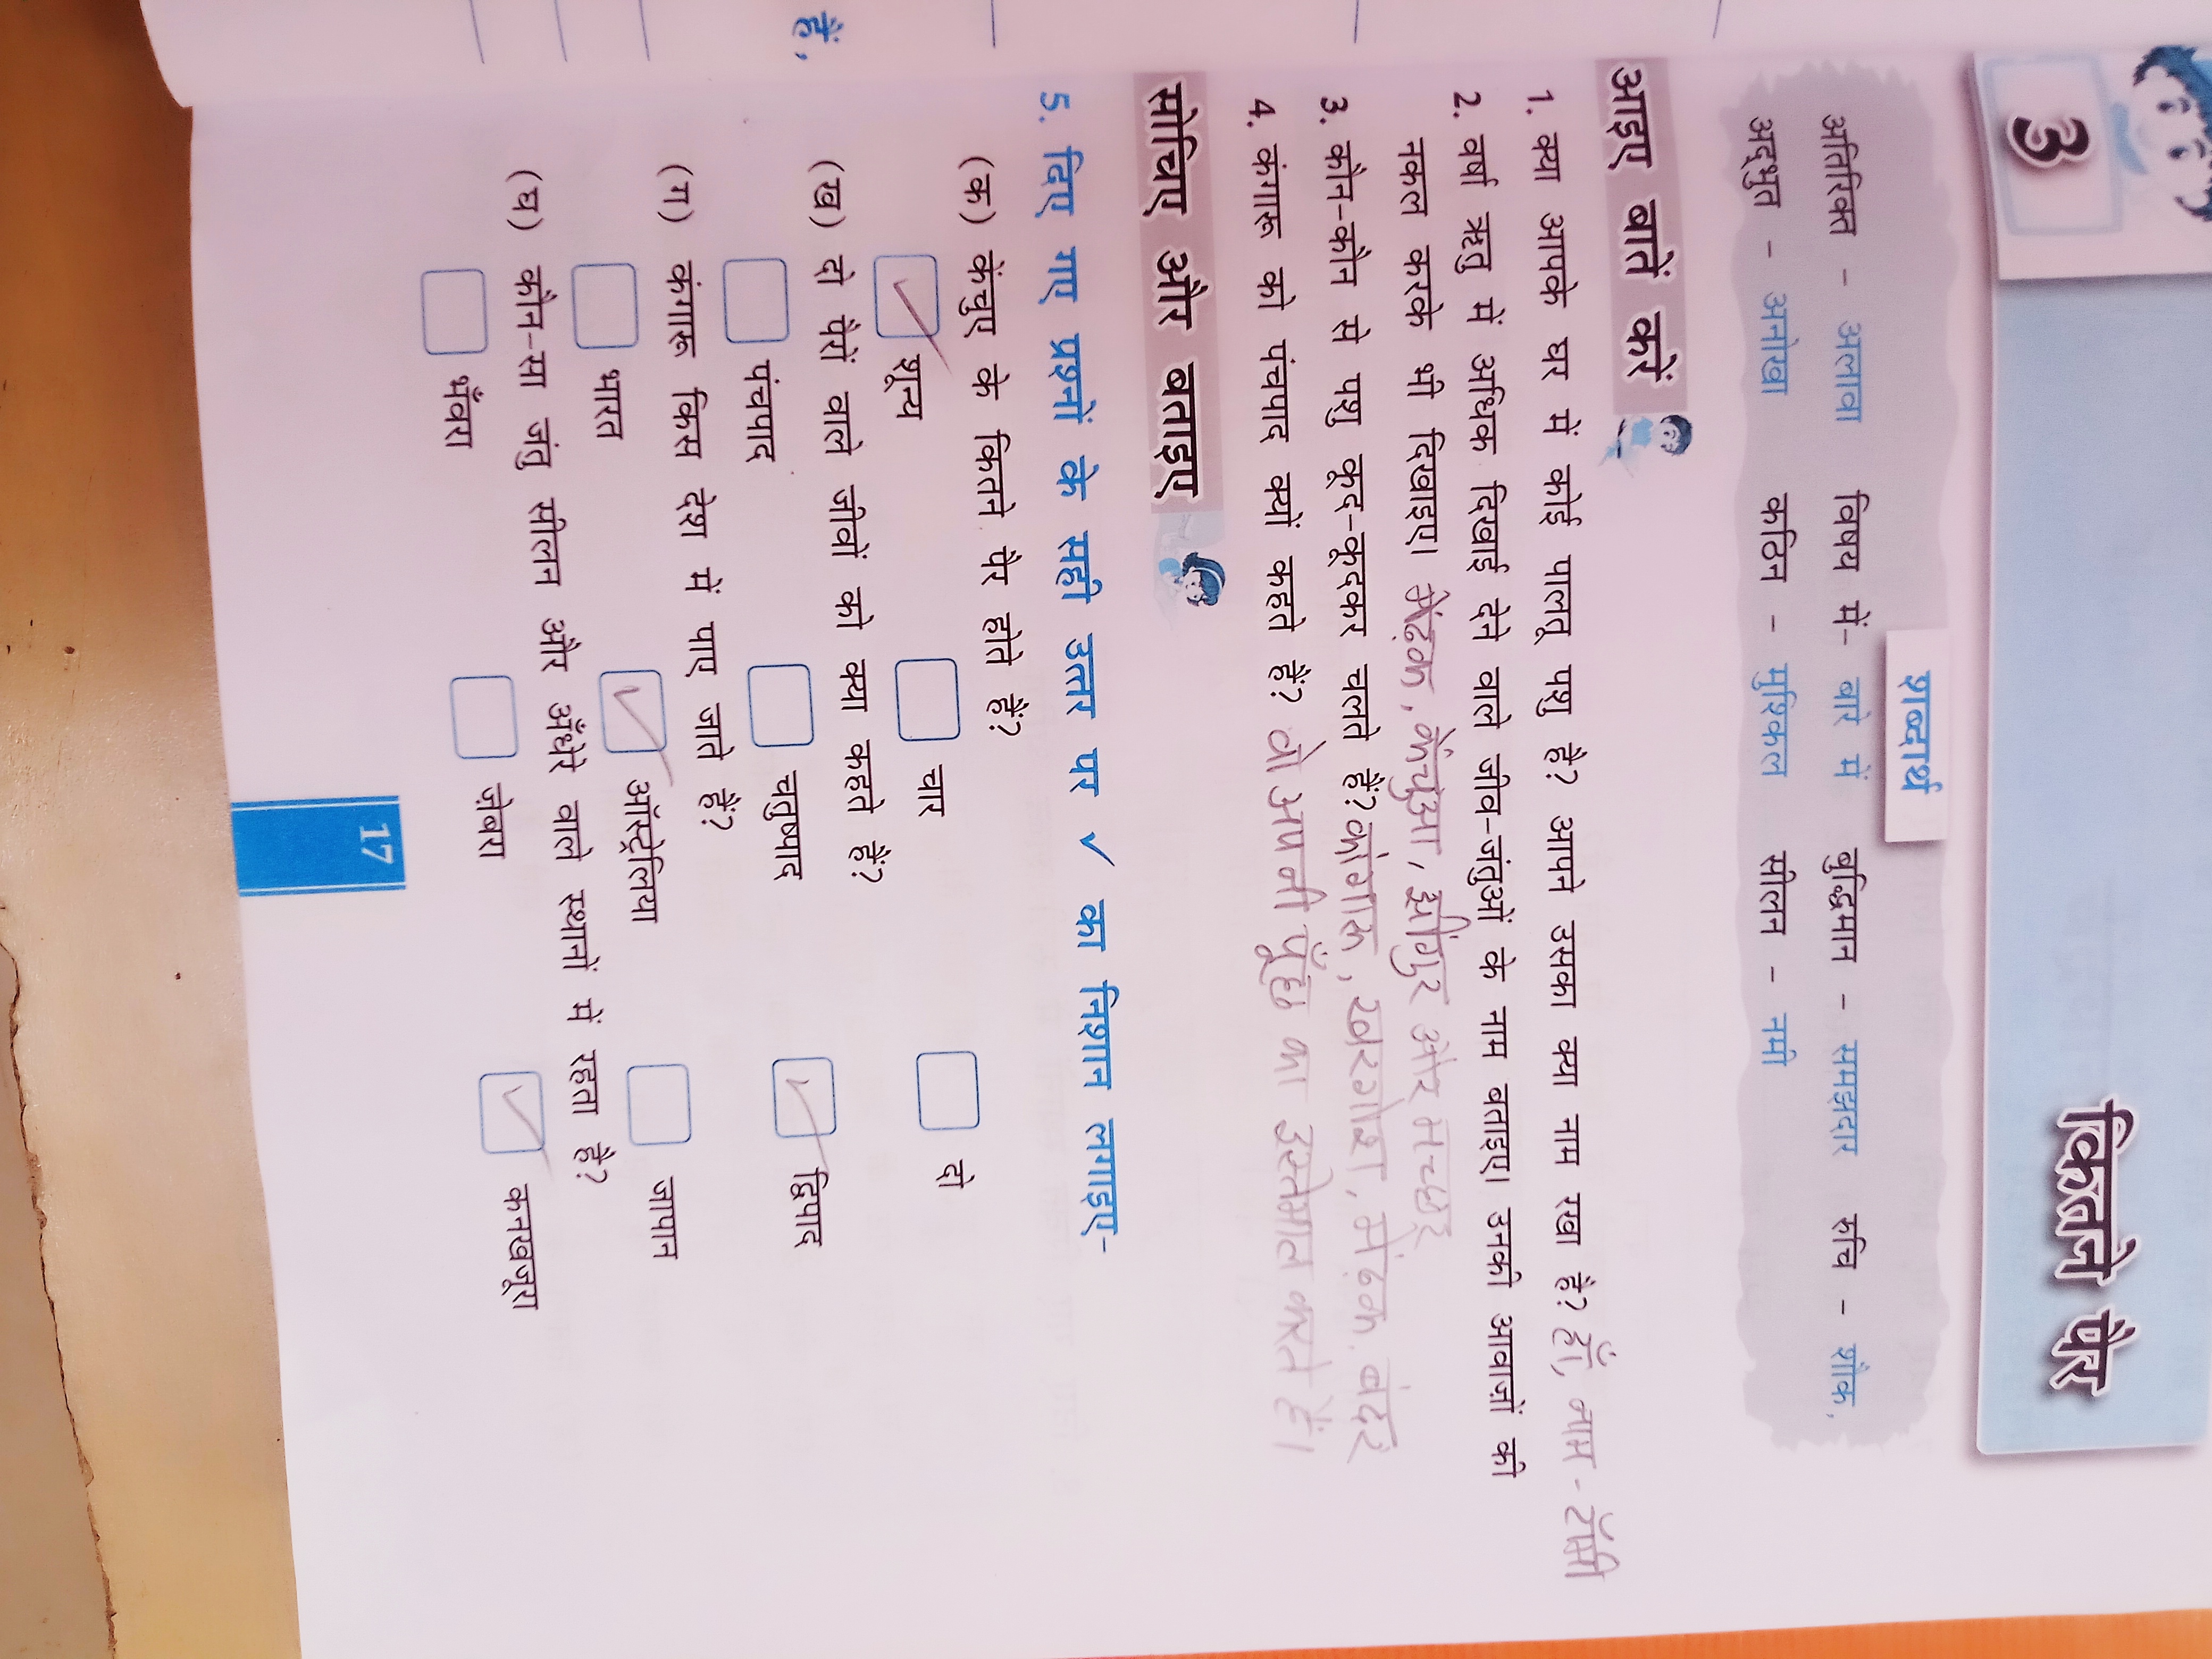 3
कितने पैर
शब्दार्थ
अतिरिक्त - अलावा विषय में- बारे में बुद्धिमान - समझदार रुचि - शौक,
अद्भुत - अनोखा कठिन - मुश्किल सीलन - नमी
आइए बातें करें
1. क्या आपके घर में कोई पालतू पशु है? आपने उसका क्या नाम रखा है? हाँ, नाम - टॉमी
2. वर्षा ऋतु में अधिक दिखाई देने वाले जीव-जंतुओं के नाम बताइए। उनकी आवाज़ों की
नकल करके भी दिखाइए। मेंढ़क, केंचुआ, झींगुर और मच्छर
3. कौन-कौन से पशु कूद-कूदकर चलते हैं? कंगारू, खरगोश, मेंढक, बंदर
4. कंगारू को पंचपाद क्यों कहते हैं? वो अपनी पूँछ का इस्तेमाल करते हैं।
सोचिए और बताइए
5. दिए गए प्रश्नों के सही उत्तर पर ✓ का निशान लगाइए-
(क) केंचुए के कितने पैर होते हैं?
✓ शून्य चार दो
(ख) दो पैरों वाले जीवों को क्या कहते हैं?
पंचपाद चतुष्पाद ✓ द्विपाद
(ग) कंगारू किस देश में पाए जाते हैं?
भारत ✓ ऑस्ट्रेलिया जापान
(घ) कौन-सा जंतु सीलन और अँधेरे वाले स्थानों में रहता है?
भँवरा ज़ेबरा ✓ कनखजूरा
17
हैं,